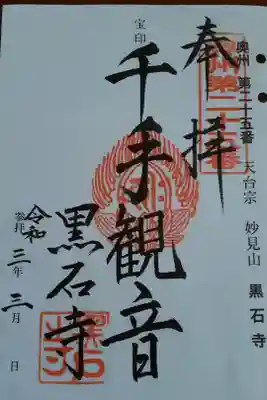 奥州 第二十五番 天台宗 妙見山 黒石寺
奥州第二十五番
奉拝
宝印
千手観音
黒石寺
令和三年三月 日
参拝